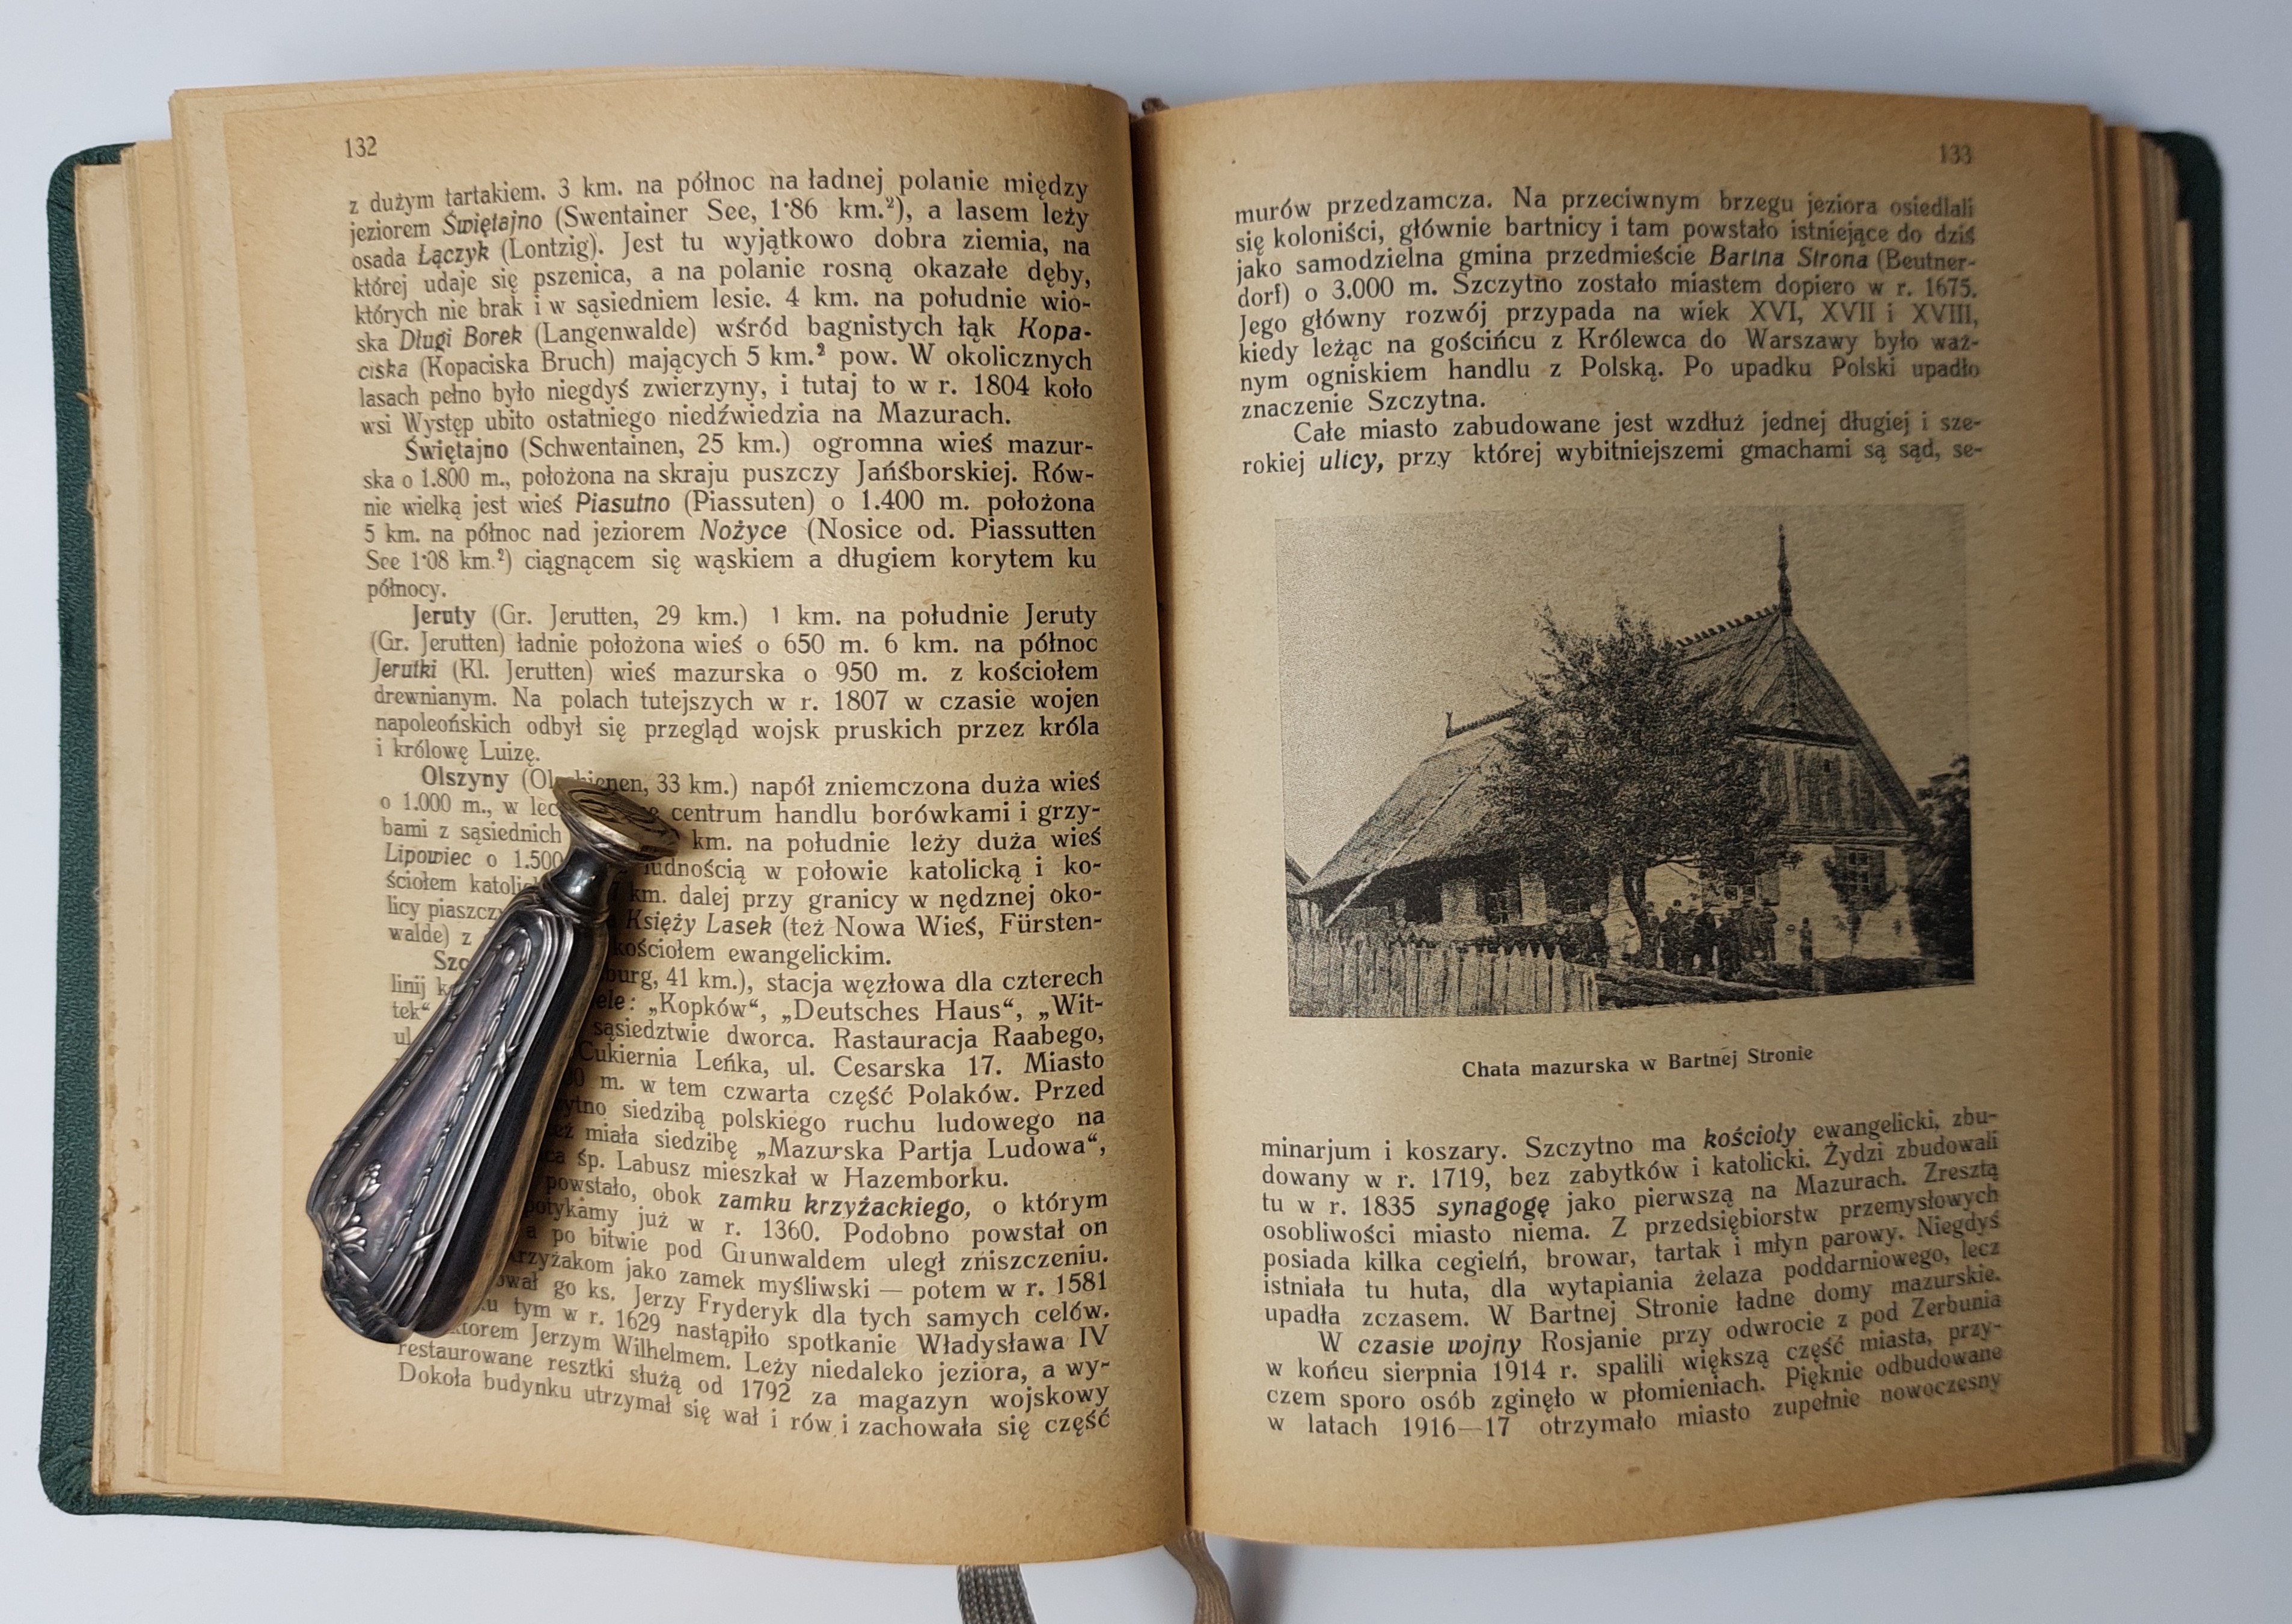 132
z dużym tartakiem. 3 km. na północ na ładnej polanie między
jeziorem Świętajno (Swentainer See, 1·86 km.²), a lasem leży
osada Łączyk (Lontzig). Jest tu wyjątkowo dobra ziemia, na
której udaje się pszenica, a na polanie rosną okazałe dęby,
których nie brak i w sąsiedniem lesie. 4 km. na południe wio-
ska Długi Borek (Langenwalde) wśród bagnistych łąk Kopa-
ciska (Kopaciska Bruch) mających 5 km.² pow. W okolicznych
lasach pełno było niegdyś zwierzyny, i tutaj to w r. 1804 koło
wsi Występ ubito ostatniego niedźwiedzia na Mazurach.
Świętajno (Schwentainen, 25 km.) ogromna wieś mazur-
ska o 1.800 m., położona na skraju puszczy Jańśborskiej. Rów-
nie wielką jest wieś Piasutno (Piassuten) o 1.400 m. położona
5 km. na północ nad jeziorem Nożyce (Nosice od. Piassutten
See 1·08 km.²) ciągnącem się wąskiem a długiem korytem ku
północy.
Jeruty (Gr. Jerutten, 29 km.) 1 km. na południe Jeruty
(Gr. Jerutten) ładnie położona wieś o 650 m. 6 km. na północ
Jerutki (Kl. Jerutten) wieś mazurska o 950 m. z kościołem
drewnianym. Na polach tutejszych w r. 1807 w czasie wojen
napoleońskich odbył się przegląd wojsk pruskich przez króla
i królowę Luizę.
Olszyny 33 km.) napół zniemczona duża wieś
o 1.000 m., w centrum handlu borówkami i grzy-
bami z sąsiednich km. na południe leży duża wieś
Lipowiec o 1.500 ludnością w połowie katolicką i ko-
ściołem km. dalej przy granicy w nędznej oko-
licy Księży Lasek (też Nowa Wieś, Fürsten-
walde) z kościołem ewangelickim.
burg, 41 km.), stacja węzłowa dla czterech
linij „Kopków“, „Deutsches Haus“, „Wit-
tek“ sąsiedztwie dworca. Rastauracja Raabego,
ul. Cukiernia Leńka, ul. Cesarska 17. Miasto
m. w tem czwarta część Polaków. Przed
siedzibą polskiego ruchu ludowego na
miała siedzibę „Mazurska Partja Ludowa“,
śp. Labusz mieszkał w Hazemborku.
powstało, obok zamku krzyżackiego, o którym
już w r. 1360. Podobno powstał on
a po bitwie pod Grunwaldem uległ zniszczeniu.
jako zamek myśliwski — potem w r. 1581
go ks. Jerzy Fryderyk dla tych samych celów.
tym w r. 1629 nastąpiło spotkanie Władysława IV
Jerzym Wilhelmem. Leży niedaleko jeziora, a wy-
restaurowane resztki służą od 1792 za magazyn wojskowy
Dokoła budynku utrzymał się wał i rów i zachowała się część
133
murów przedzamcza. Na przeciwnym brzegu jeziora osiedlali
się koloniści, głównie bartnicy i tam powstało istniejące do dziś
jako samodzielna gmina przedmieście Bartna Strona (Beutner-
dorf) o 3.000 m. Szczytno zostało miastem dopiero w r. 1675.
Jego główny rozwój przypada na wiek XVI, XVII i XVIII,
kiedy leżąc na gościńcu z Królewca do Warszawy było waż-
nym ogniskiem handlu z Polską. Po upadku Polski upadło
znaczenie Szczytna.
Całe miasto zabudowane jest wzdłuż jednej długiej i sze-
rokiej ulicy, przy której wybitniejszemi gmachami są sąd, se-
Chata mazurska w Bartnej Stronie
minarjum i koszary. Szczytno ma kościoły ewangelicki, zbu-
dowany w r. 1719, bez zabytków i katolicki. Żydzi zbudowali
tu w r. 1835 synagogę jako pierwszą na Mazurach. Zresztą
osobliwości miasto niema. Z przedsiębiorstw przemysłowych
posiada kilka cegielń, browar, tartak i młyn parowy. Niegdyś
istniała tu huta, dla wytapiania żelaza poddarniowego, lecz
upadła zczasem. W Bartnej Stronie ładne domy mazurskie.
W czasie wojny Rosjanie przy odwrocie z pod Zerbunia
w końcu sierpnia 1914 r. spalili większą część miasta, przy-
czem sporo osób zginęło w płomieniach. Pięknie odbudowane
w latach 1916—17 otrzymało miasto zupełnie nowoczesny